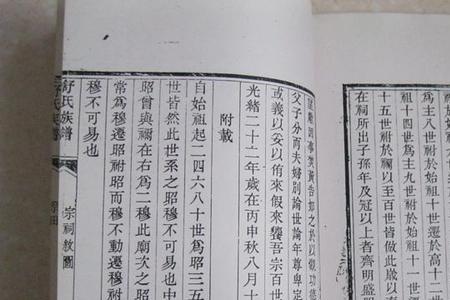 為主八世祔於始祖十世遷於高十二
祖十四世為主九世祔於始祖十一世
十五世祔於始祖以至百世皆倣此歲以
在祠所出子孫年及冠以上者齊明盛
因事焚黃告
父子分而夫婦別論世論年尊卑定
或義以安以侑來假來饗吾宗百世
光緒二十二年歲在丙申秋八月十
附載
自始祖起二四六八十世為昭三五
世皆然此世系之昭穆不可易也中
昭曾與禰在右為二穆此廟次之昭
常為穆遷昭祔昭而穆不動遷穆祔
穆不可易也
舒氏族譜
宗祠敘圖